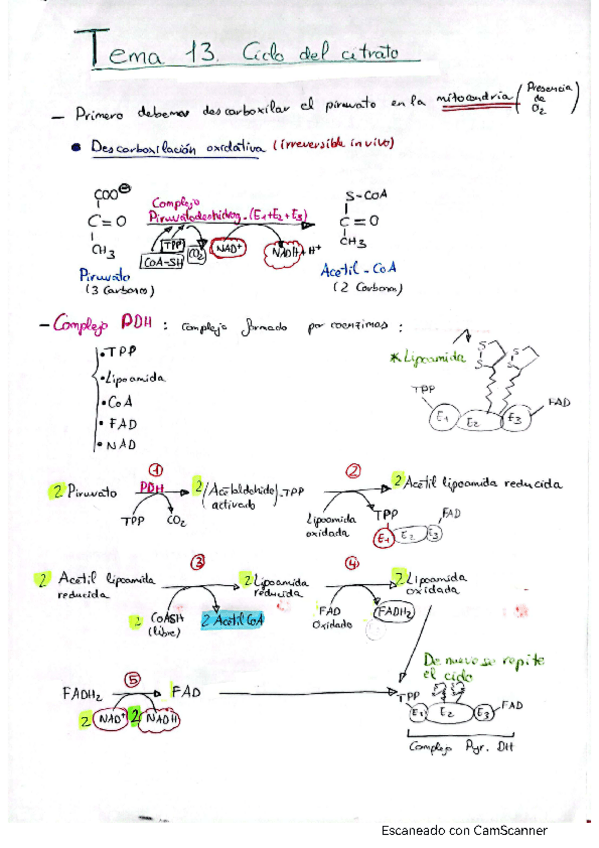 Tema 13. Ciclo del citrato
- Primero debemos descarboxilar el piruvato en la mitocondria (Presencia de O2)
• Descarboxilación oxidativa (irreversible in vivo)
COO⊖
C=O
CH3
Piruvato
(3 Carbonos)
Complejo
Piruvatodeshidrog. (E1+E2+E3)
TPP
CoA-SH
CO2
NAD+
NADH+H+
S-CoA
C=O
CH3
Acetil-CoA
(2 Carbonos)
- Complejo PDH : complejo formado por coenzimas :
• TPP
• Lipoamida
• CoA
• FAD
• NAD
* Lipoamida
S
S
S
S
TPP
E1
E2
E3
FAD
①
2 Piruvato
PDH
TPP
CO2
2 (Acetaldehido)-TPP
activado
②
Lipoamida
oxidada
TPP
E1
E2
E3
FAD
2 Acetil lipoamida reducida
2 Acetil lipoamida
reducida
③
2 CoASH
(libre)
2 Acetil CoA
2 Lipoamida
reducida
④
FAD
Oxidado
FADH2
2 Lipoamida
oxidada
⑤
FADH2
FAD
2 NAD+
2 NADH
De nuevo se repite
el ciclo
TPP
E1
E2
E3
FAD
Complejo Pyr. DH
Escaneado con CamScanner